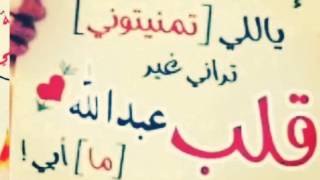 ياللي [تمنيتوني]
تراني غير
قلب عبدالله
[ما] أبي!